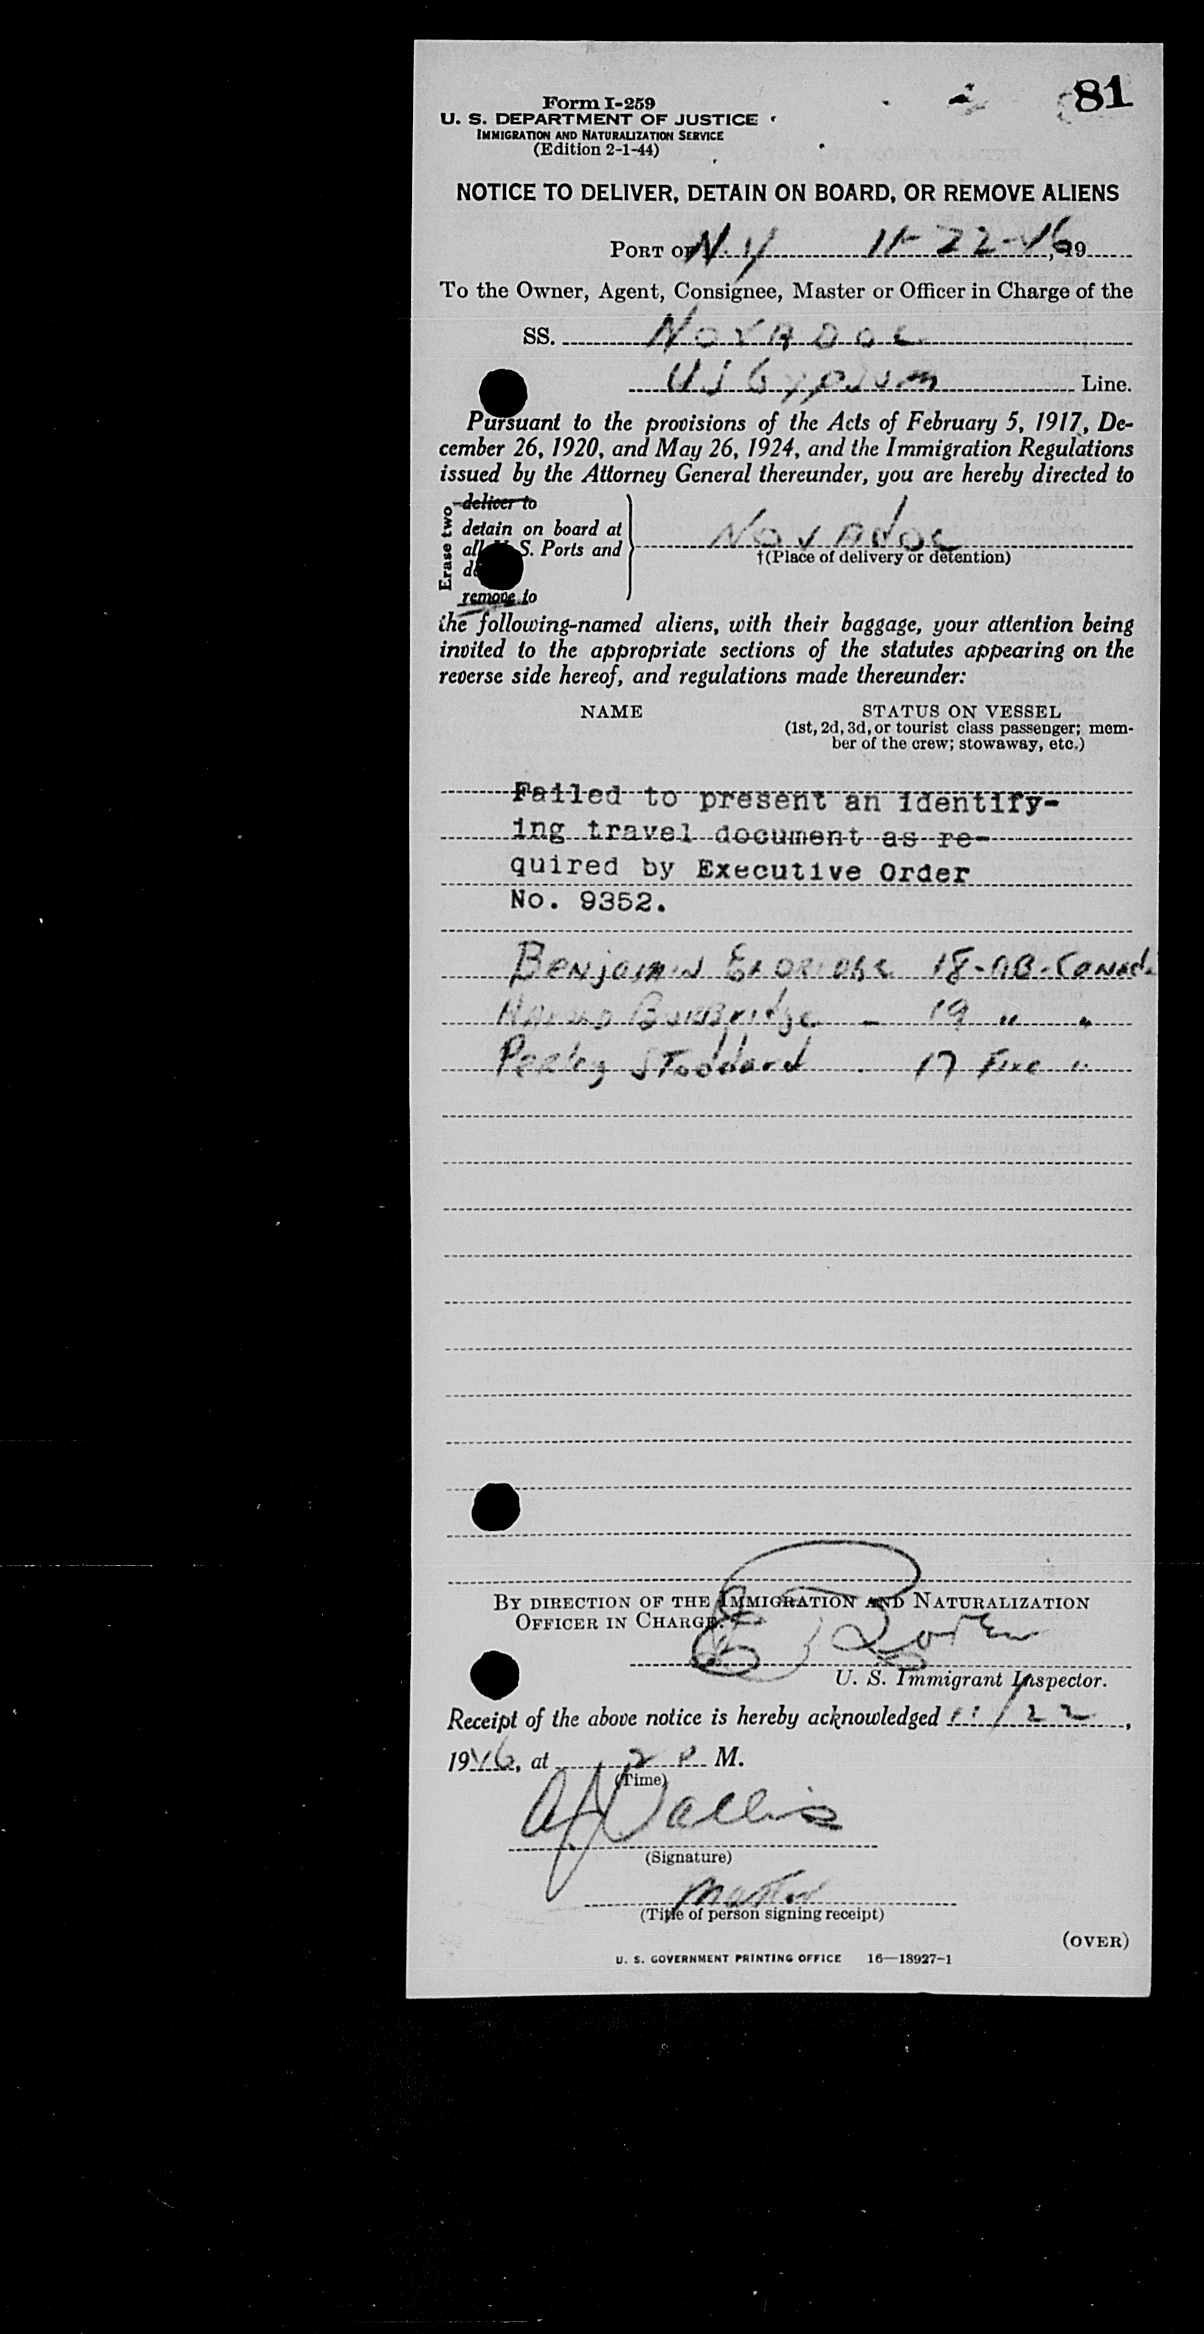 81
Form I-259
U. S. DEPARTMENT OF JUSTICE
IMMIGRATION AND NATURALIZATION SERVICE
(Edition 2-1-44)
NOTICE TO DELIVER, DETAIN ON BOARD, OR REMOVE ALIENS
PORT OF N.Y 11-22-46, 19
To the Owner, Agent, Consignee, Master or Officer in Charge of the
SS. NOVADOC
U S Gypsum Line.
Pursuant to the provisions of the Acts of February 5, 1917, De-
cember 26, 1920, and May 26, 1924, and the Immigration Regulations
issued by the Attorney General thereunder, you are hereby directed to
Erase two
deliver to
detain on board at
all U. S. Ports and
remove to
NOVADOC
†(Place of delivery or detention)
the following-named aliens, with their baggage, your attention being
invited to the appropriate sections of the statutes appearing on the
reverse side hereof, and regulations made thereunder:
NAME STATUS ON VESSEL
(1st, 2d, 3d, or tourist class passenger; mem-
ber of the crew; stowaway, etc.)
Failed to present an identify-
ing travel document as re-
quired by Executive Order
No. 9352.
BENJAMIN 18-AB-CANADA
HAROLD 19 " "
Perley Stoddard - 17 Fire "
BY DIRECTION OF THE IMMIGRATION AND NATURALIZATION
OFFICER IN CHARGE.
U. S. Immigrant Inspector.
Receipt of the above notice is hereby acknowledged 11/22,
1946, at 2 P. M.
(Time)
(Signature)
Master
(Title of person signing receipt)
(OVER)
U. S. GOVERNMENT PRINTING OFFICE 16—18927-1